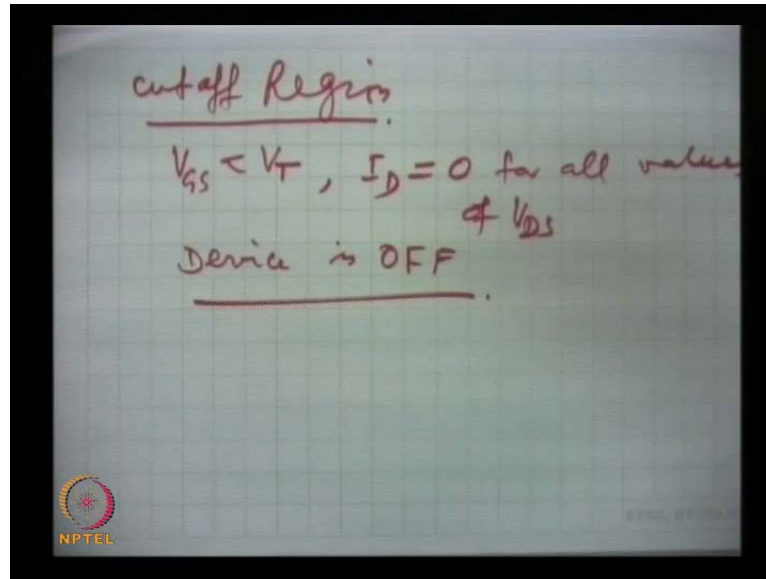 cutoff Region.
V_GS < V_T, I_D = 0 for all values
of V_DS
Device is OFF.
NPTEL